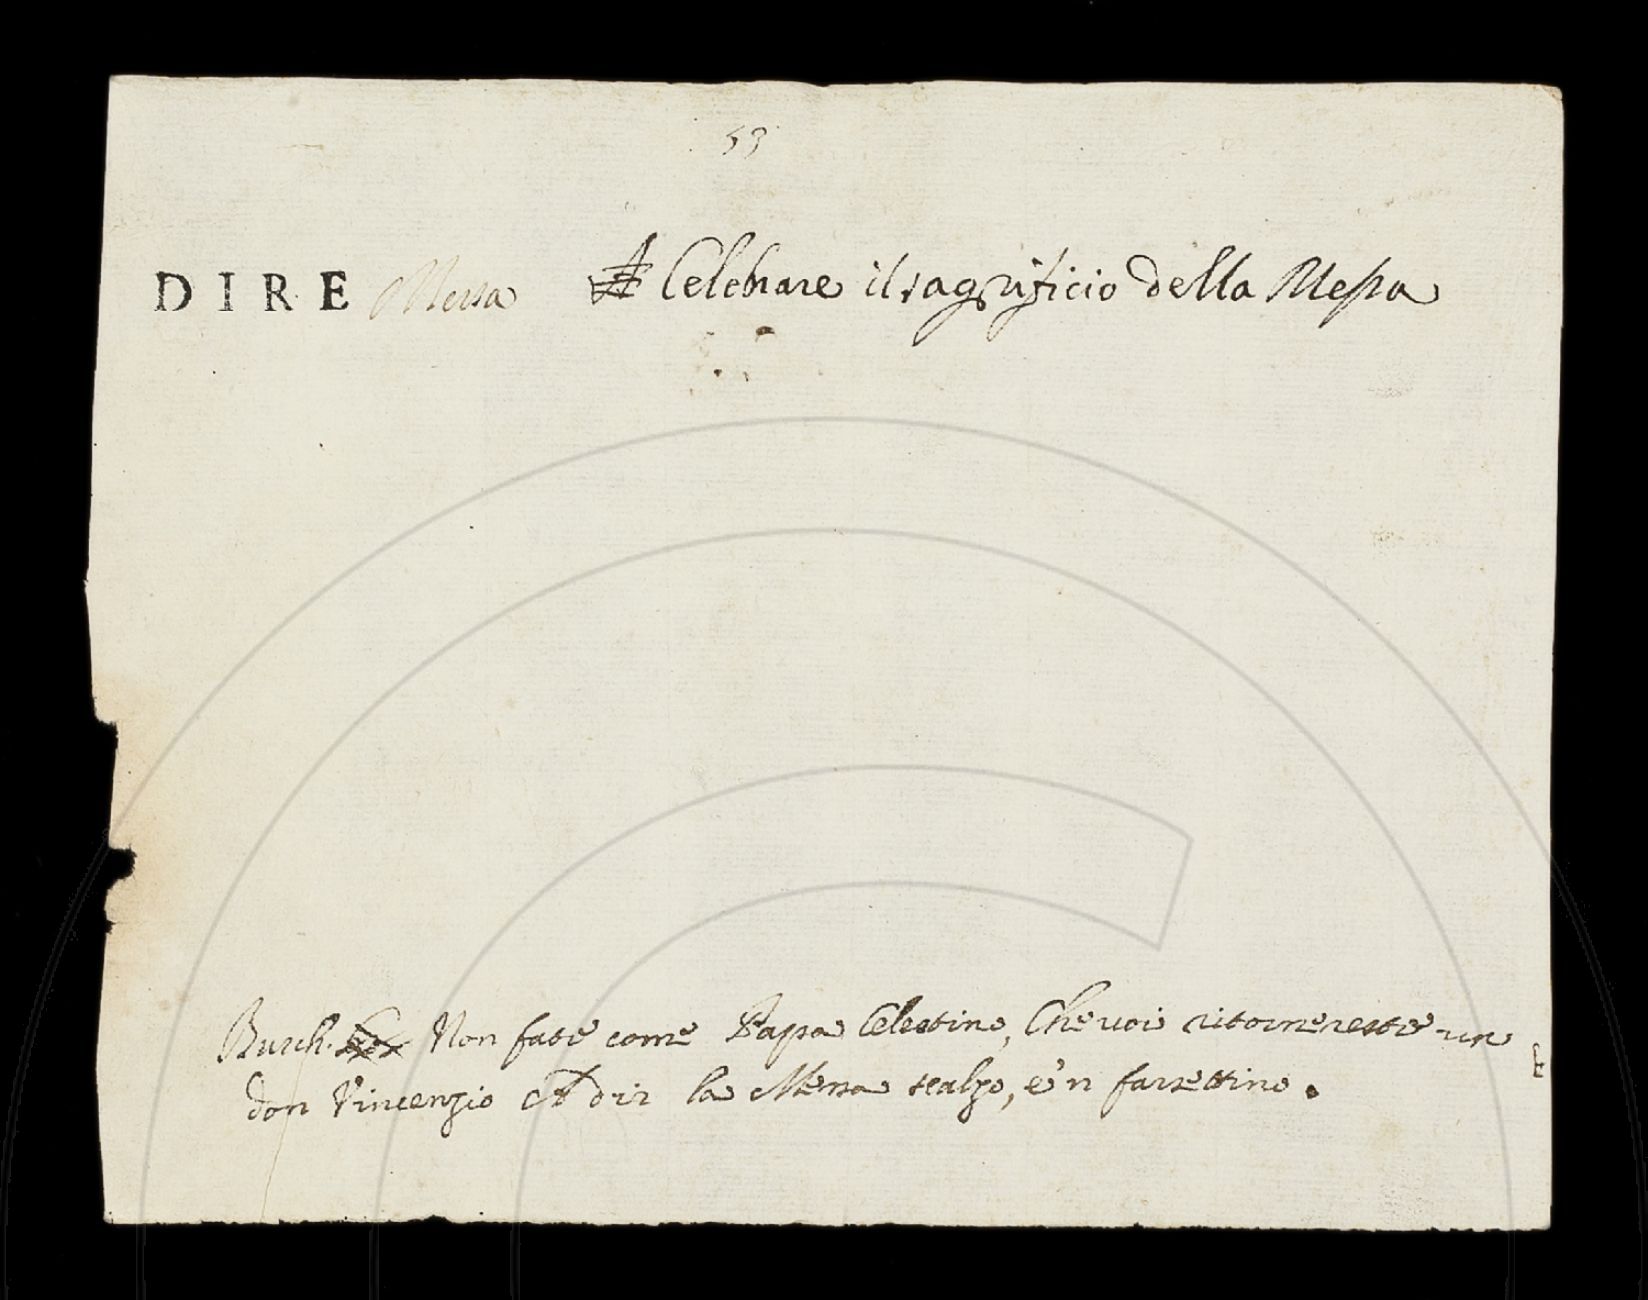 53
DIRE Messa Celebrare il sagrificio della Messa
Burch. Non fate come Papa Celestino, Che voi ritornereste un
don Vincenzio A dir la Messa scalzo, e'n farsettino.